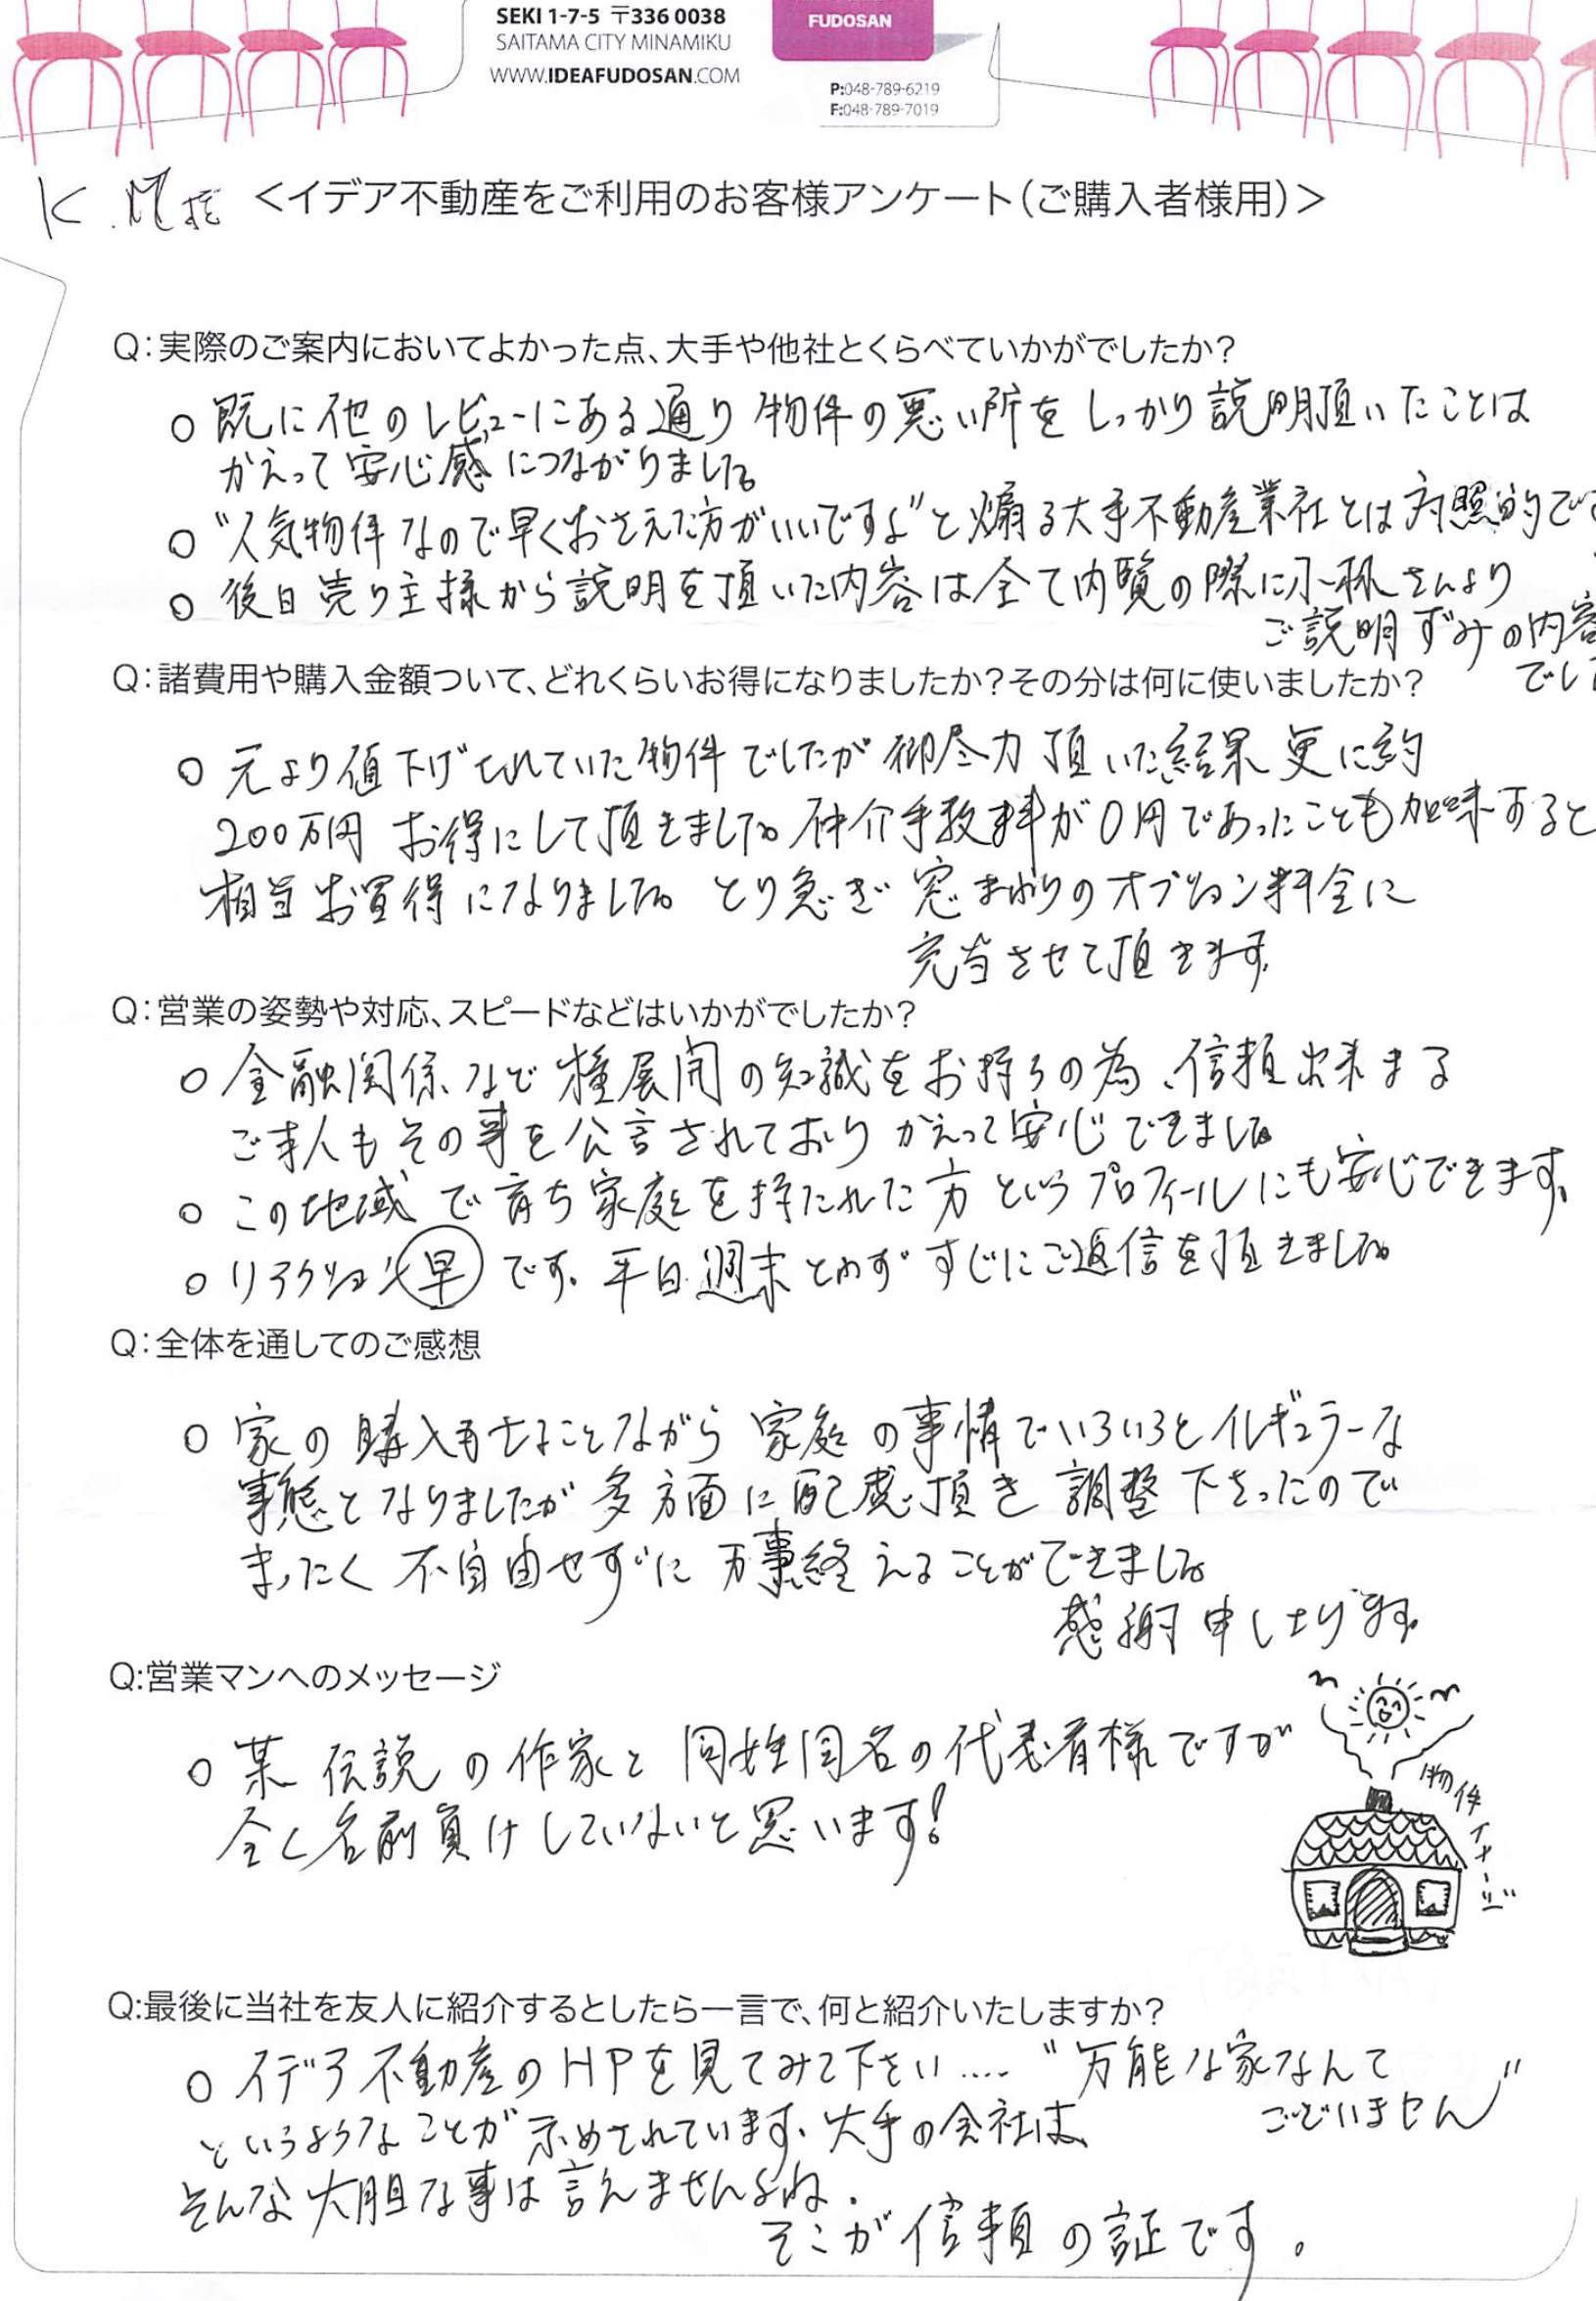 SEKI 1-7-5 〒336 0038
SAITAMA CITY MINAMIKU
WWW.IDEAFUDOSAN.COM
FUDOSAN
P:048-789-6219
F:048-789-7019
K.M様 <イデア不動産をご利用のお客様アンケート(ご購入者様用)>
Q:実際のご案内においてよかった点、大手や他社とくらべていかがでしたか?
○ 既に他のレビューにある通り 物件の悪い所を しっかり説明頂いたことは
かえって安心感につながりました。
○ “人気物件なので早くおさえた方がいいですよ”と煽る大手不動産業社とは対照的です
○ 後日売り主様から説明を頂いた内容は全て内覧の際に小林さんより
ご説明ずみの内容
でした
Q:諸費用や購入金額ついて、どれくらいお得になりましたか?その分は何に使いましたか?
○ 元より値下げされていた物件でしたが御尽力頂いた結果 更に約
200万円 お得にして頂きました。仲介手数料が0円であったことも加味すると
相当お買得になりました。とり急ぎ 窓まわりのオプション料金に
充当させて頂きます。
Q:営業の姿勢や対応、スピードなどはいかがでしたか?
○ 金融関係など 展開の知識をお持ちの為、信頼出来まる
ご本人もその事を公言されており かえって安心できました。
○ この地域で育ち家庭を持たれた方というプロフィールにも安心できます。
○ リアクション早です。平日週末とわずすぐにご返信を頂きました。
Q:全体を通してのご感想
○ 家の購入もさることながら家庭の事情でいろいろとイレギュラーな
事態となりましたが多方面に配慮頂き 調整下さったので
まったく不自由せずに万事終えることができました。
感謝申し上げます。
Q:営業マンへのメッセージ
○ 某 伝説の作家と同姓同名の代表者様ですが
全く名前負けしていないと思います!
物件イメージ
Q:最後に当社を友人に紹介するとしたら一言で、何と紹介いたしますか?
○ イデア不動産のHPを見てみて下さい.... “万能な家なんて
ございません”
というようなことが示めされています。大手の会社は、
そんな大胆な事は言えませんよね。
そこが信頼の証です。